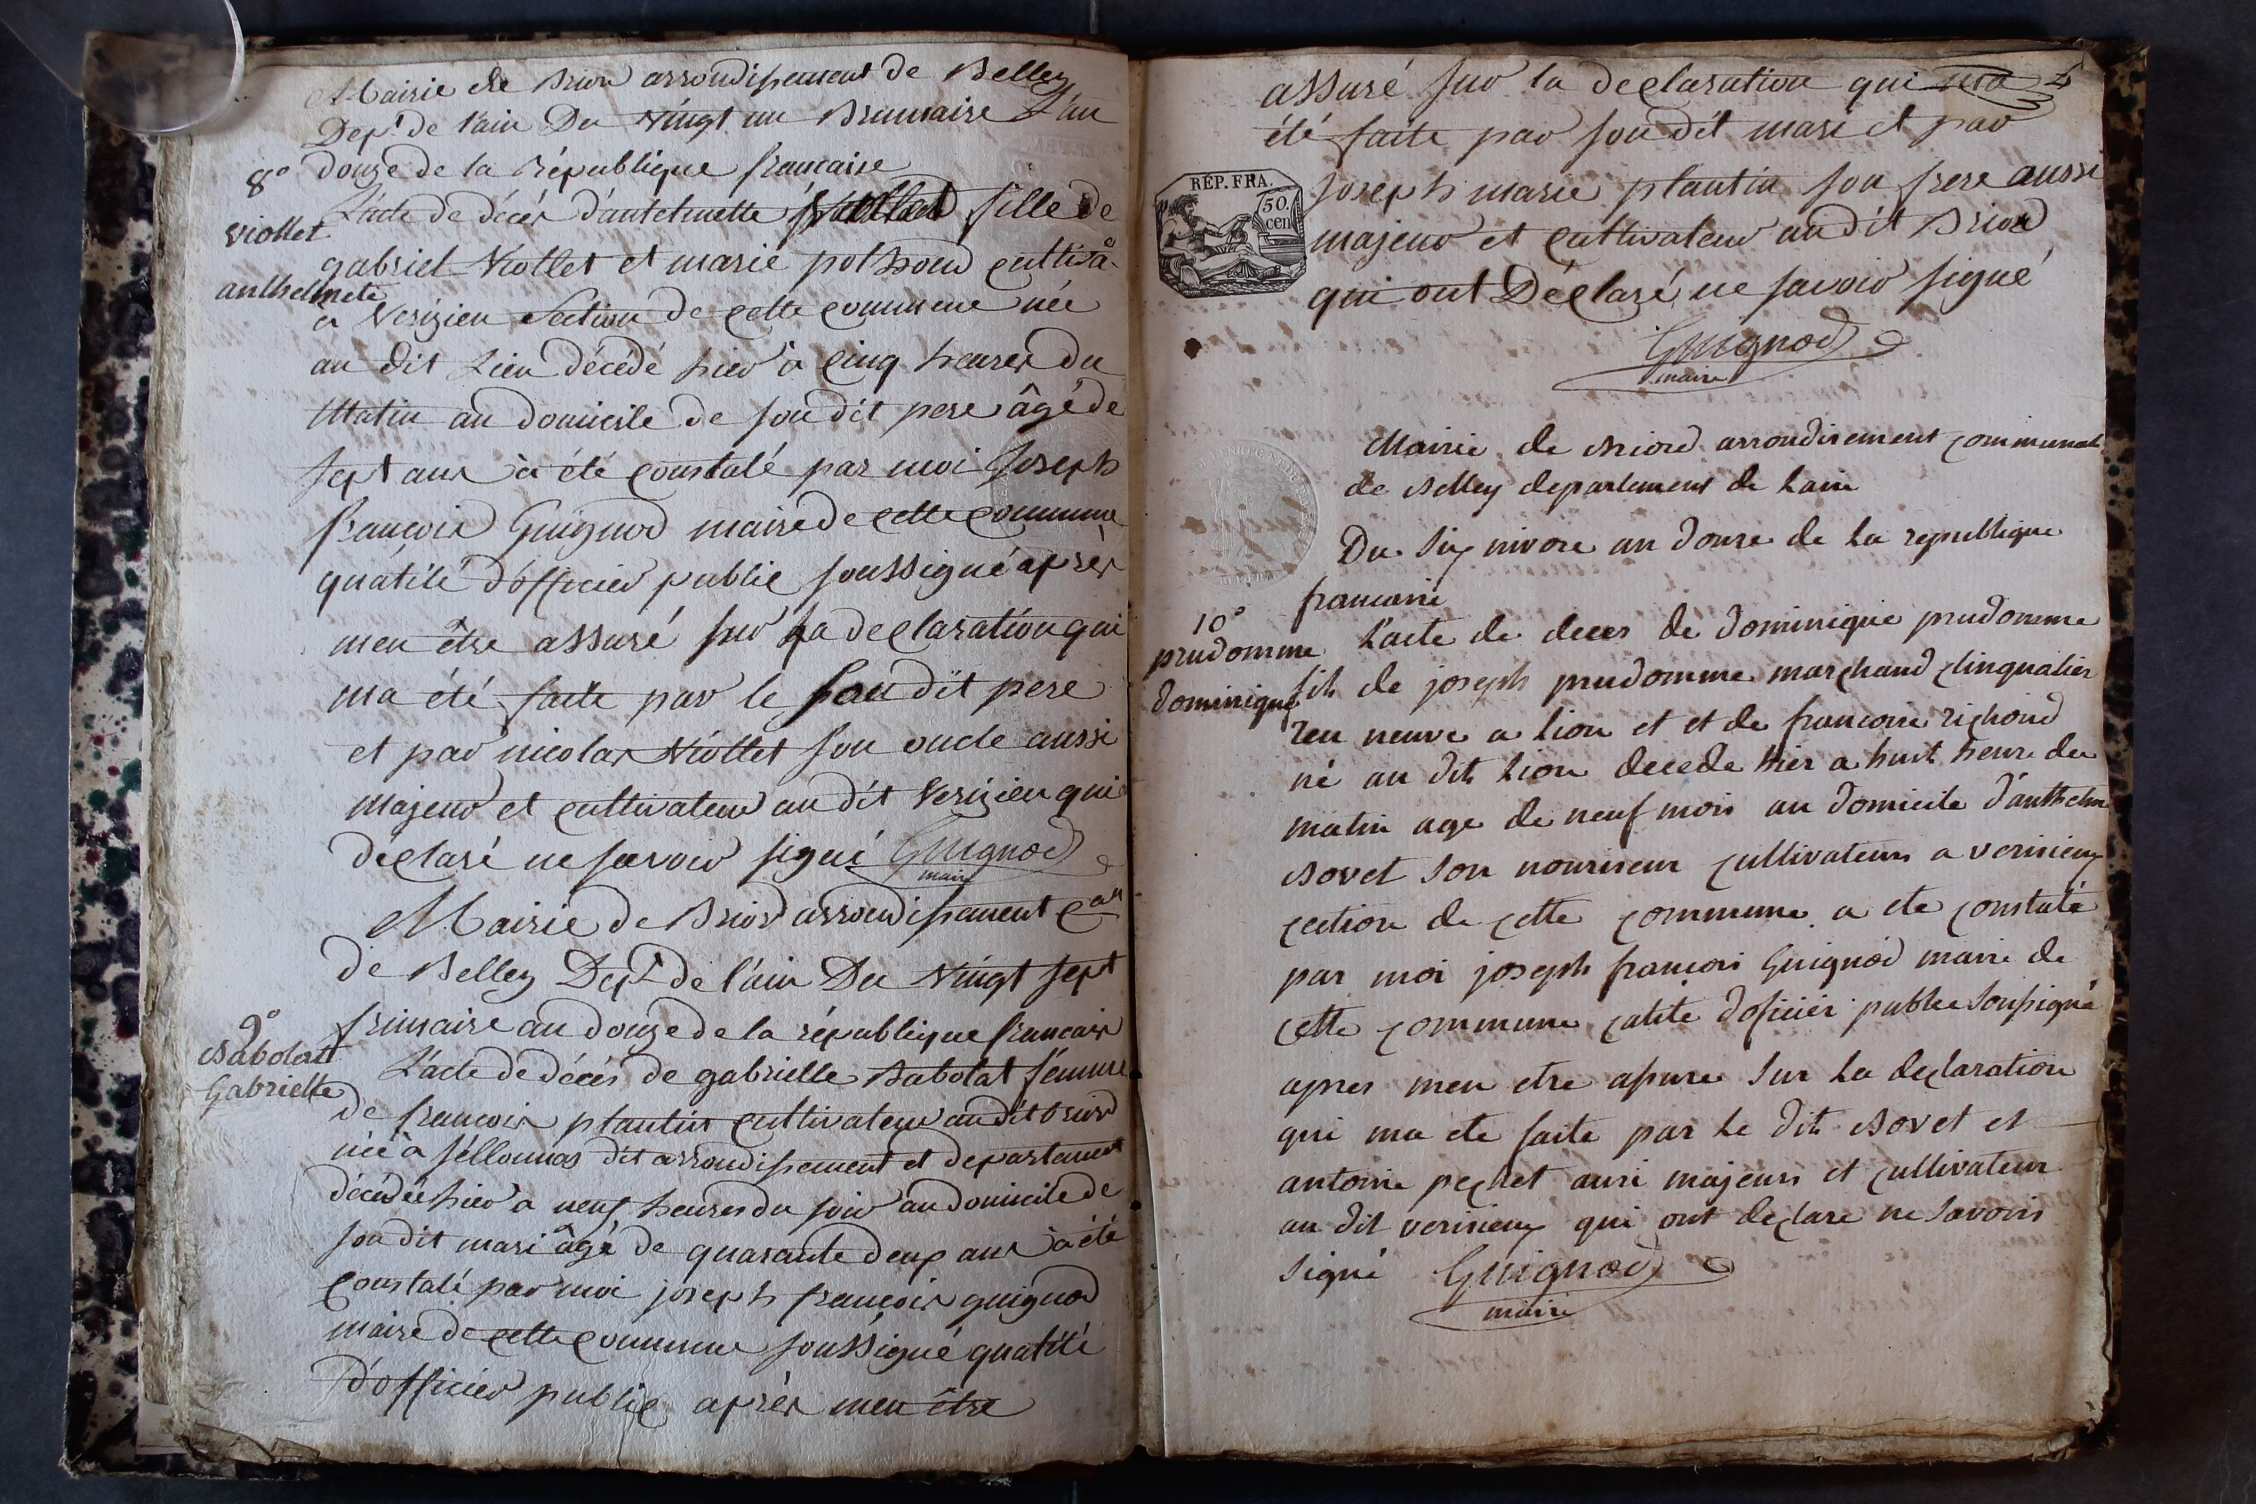 Mairie de Briord arrondissement de Belley
Dept. de l'ain Du vingt un Brumaire L'an
8° douze de la république francaise
L'acte de décés d'antelmette fille de
viollet
gabriel Viollet et marie cultiva.
anthelmete
a Verizieu Section de cette commune née
au dit Lieu décédé hier à cinq heures du
Matin au domicile de son dit pere âgé de
sept ans à été constaté par moi Joseph
francois Guignod maire de cette commune
qualité d'officier public soussigné après
men être assuré sur la declaration qui
ma été faite par le son dit pere
et par nicolas Viollet son oncle aussi
majeur et cultivateur au dit Verizieu qui
déclaré ne savoir signé Guignod
maire
Mairie de Briord arrondissement can
de Belley Dept. de l'ain Du Vingt sept
9° frimaire an douze de la république francaise
Babolat
L'acte de décés de gabrielle Babolat fémme
Gabrielle
de francois plantin cultivateur au dit briord
née à séllonnas dit arrondissement et departement
décédée hier a neuf heures du soir au domicile de
son dit mari âgé de quarante deux ans à été
constaté par moi joseph françois guignod
maire de cette commune soussigné qualité
d'officier public après men être
assuré sur la declaration qui ma 4
été faite par son dit mari et par
RÉP. FRA.
50.
cen
joseph marie plantin son frere aussi
majeur et cultivateur audit Briord
qui ont Déclaré ne savoir signé
Guignod
maire
Mairie de Briord arrondisement communal
de Belley departement de Lain
Du six nivose an douse de la republique
francaise
10°
L'acte de deces de dominique prudomme
prudomme
fils de joseph prudomme marchand clinqualier
dominique
reu neuve a lion et et de francoise richond
né au dit Lion decede hier a huit heure du
matin age de neuf mois au domicile d'anthelme
Bovet son nouriseur cultivateur a verisieux
cection de cette commune a ete constaté
par moi joseph francois Guignod maire de
cette commune calite d'oficier public soussigné
apres men etre assure sur la declaration
qui ma ete faite par le dit Bovet et
antoine pechet ausi majeurs et cultivateur
au dit verisieux qui ont declare ne savoir
signé Guignod
maire